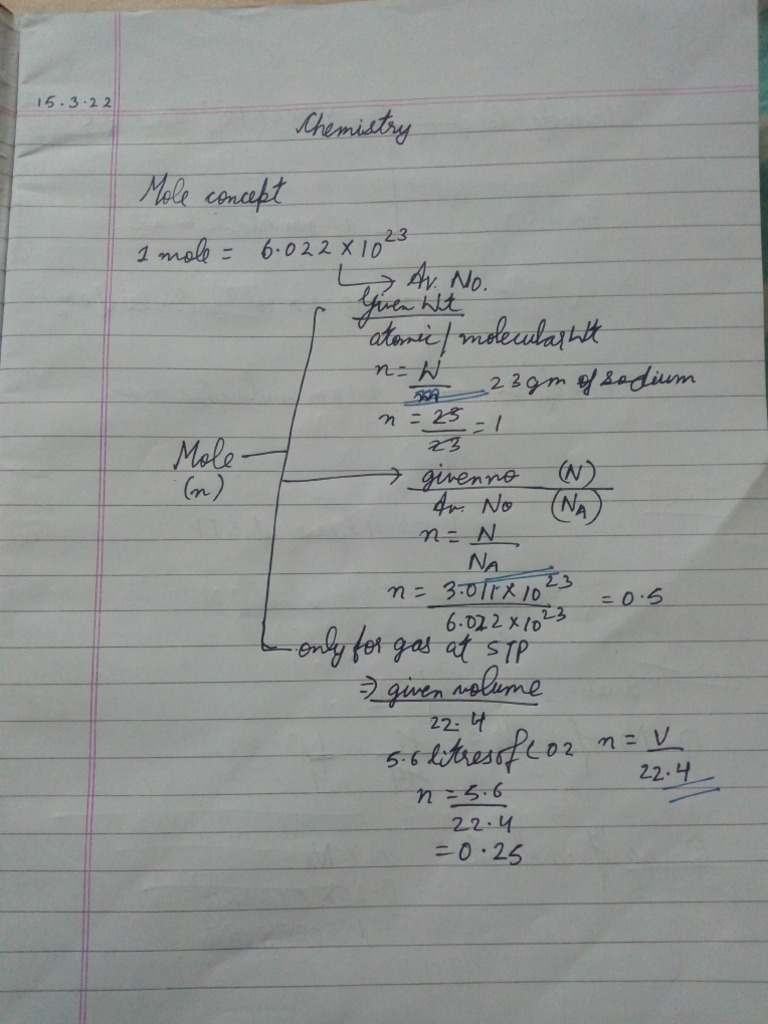 15.3.22
Chemistry
Mole concept
1 mole = 6.022 × 10²³
→ Av. No.
Given Wt
atomic / molecular Wt
n = W
23 gm of sodium
n = 23
23 = 1
Mole
(n)
→ given no (N)
Av. No (NA)
n = N
NA
n = 3.011 × 10²³
6.022 × 10²³ = 0.5
only for gas at STP
⇒ given volume
22.4
5.6 litres of CO2 n = V
22.4
n = 5.6
22.4
= 0.25